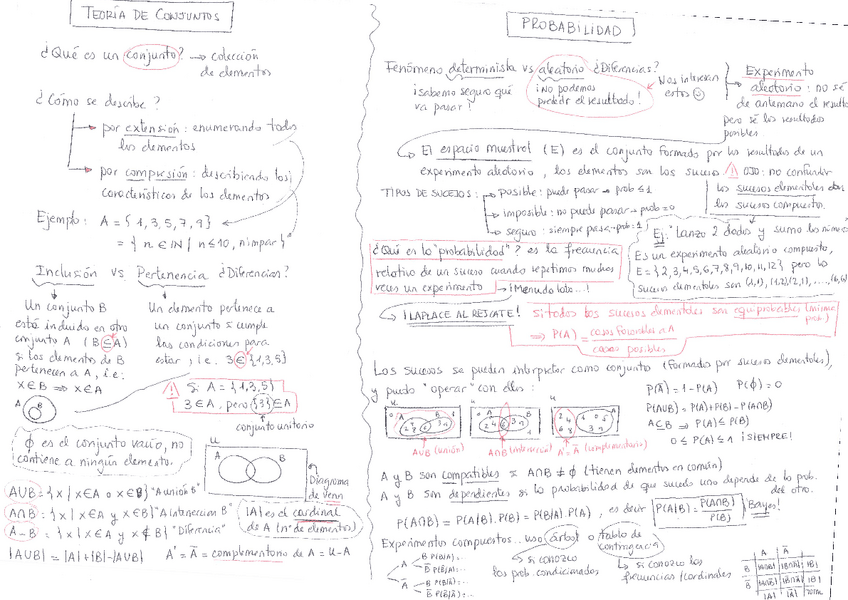 TEORÍA DE CONJUNTOS
¿Qué es un conjunto? → colección
de elementos
¿Cómo se describe?
por extensión: enumerando todos
los elementos
por compresión: describiendo las
características de los elementos
Ejemplo: A = {1, 3, 5, 7, 9}
= {n ∈ IN / n ≤ 10, n impar}
Inclusión vs Pertenencia ¿Diferencias?
Un conjunto B
está incluido en otro
conjunto A (B ⊆ A)
si los elementos de B
pertenecen a A, i.e:
x∈B ⇒ x∈A
A B
Un elemento pertenece a
un conjunto si cumple
las condiciones para
estar, i.e. 3 ∈ {1,3,5}
Si A = {1,3,5}
3 ∈ A, pero {3} ∈ A
conjunto unitario
ϕ es el conjunto vacío, no
contiene a ningún elemento.
U
A B
Diagrama
de Venn
A∪B = {x / x∈A o x∈B} "A unión B"
A∩B = {x / x∈A y x∈B} "A intersección B"
A-B = {x / x∈A y x∉B} "Diferencia"
|A| es el cardinal
de A (nº de elementos)
|A∪B| = |A|+|B|-|A∪B|
A' = Ā = complementario de A = U-A
PROBABILIDAD
Fenómeno determinista vs aleatorio ¿Diferencias?
¡sabemos seguro qué
va pasar!
¡No podemos
predecir el resultado!
Nos interesan
estos
Experimento
aleatorio: no sé
de antemano el resultado
pero sé los resultados
posibles.
El espacio muestral (E) es el conjunto formado por los resultados de un
experimento aleatorio, los elementos son los sucesos
OJO: no confundir
los sucesos elementales con
los sucesos compuestos.
TIPOS DE SUCESOS:
posible: puede pasar → prob ≤ 1
imposible: no puede pasar → prob = 0
seguro: siempre pasa → prob = 1
Ej: "Lanzo 2 dados y sumo los números
Es un experimento aleatorio compuesto,
E = {2,3,4,5,6,7,8,9,10,11,12} pero los
sucesos elementales son (1,1), (1,2), (2,1), ..., (6,6)
¿Qué es la "probabilidad"? es la frecuencia
relativa de un suceso cuando repetimos muchas
veces un experimento → ¡Menudo lote...!
¡LAPLACE AL RESCATE!
Si todos los sucesos elementales son equiprobables (misma prob.)
⇒ P(A) = casos favorables a A
casos posibles
Los sucesos se pueden interpretar como conjunto (formados por sucesos elementales),
y puedo "operar" con ellos:
A∪B (unión)
A∩B (intersección)
A' = Ā (complementario)
P(Ā) = 1-P(A) P(ϕ) = 0
P(A∪B) = P(A)+P(B)-P(A∩B)
A⊆B ⇒ P(A) ≤ P(B)
0 ≤ P(A) ≤ 1 ¡SIEMPRE!
A y B son compatibles si A∩B ≠ ϕ (tienen elementos en común)
A y B son dependientes si la probabilidad de que suceda uno depende de la prob.
del otro.
P(A∩B) = P(A|B).P(B) = P(B|A).P(A), es decir P(A|B) = P(A∩B)
P(B)
¡Bayes!
Experimentos compuestos... uso árbol o tabla de
contingencia
si conozco
las prob. condicionadas
si conozco las
frecuencias / cardinales
A Ā
B |A∩B| |B∩Ā| |B|